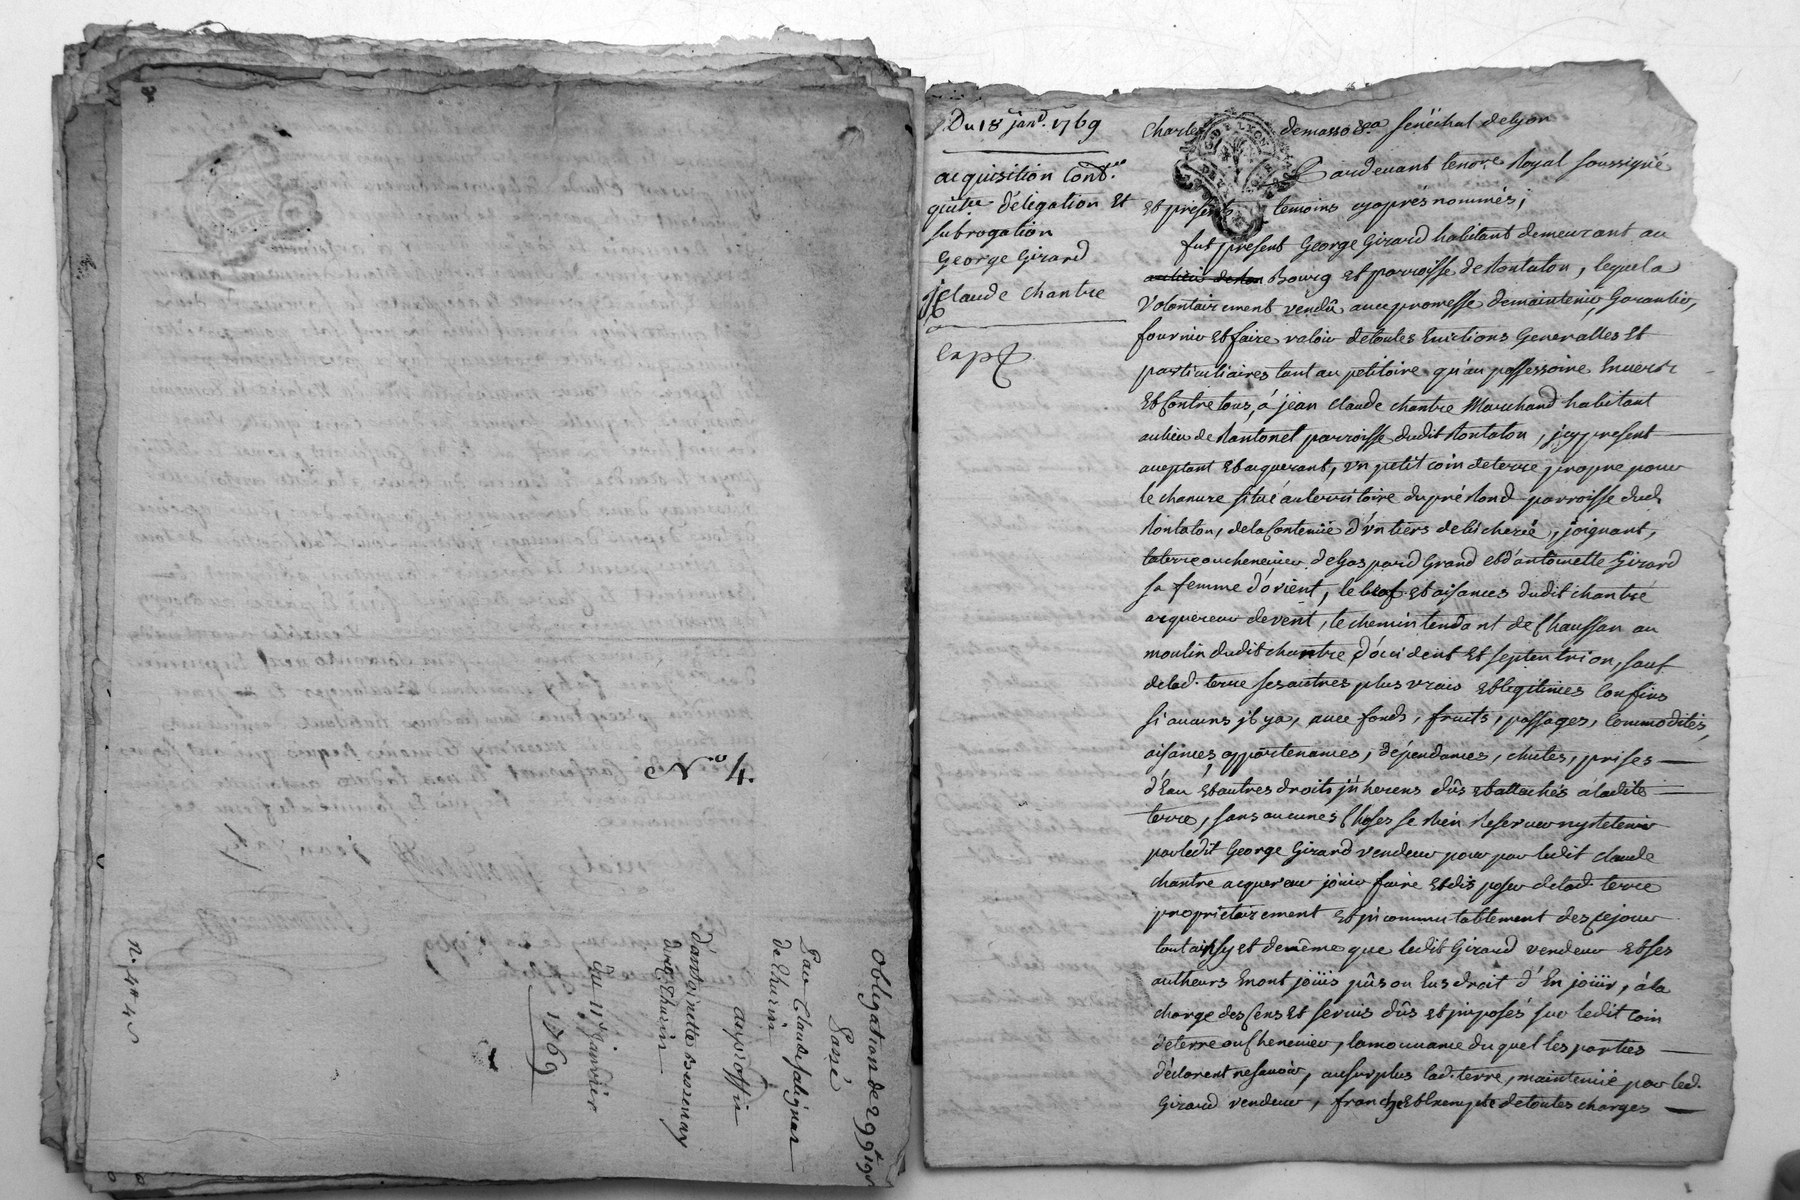 N.o 4.
Obligation de 299# 19s
Passé
Par Claude Jaliguar
de Thurin
au proffit
d'antoinette
de Thurin
du 11e Janvier
1769
n. 4
Du 18 janv. 1769
acquisition Cont.t
quitte délégation Et
subrogation
George Girard
Claude Chantre
Exp
Charles demasso &a Senéchal de Lyon
Pardevant le no.re Royal soussigné
Et présents temoins cyaprés nommés;
fut présent George Girard habitant demeurant au
Bourg et parroisse de Rontalon, lequel a
Volontairement vendû avec promesse de maintenir, Garantir,
fournir Et faire valoir de toutes Evictions Generalles Et
particuliaires tant au petitoire qu'au possessoire Envers
Et Contre tous, á jean Claude chantre Marchand habitant
au lieu de Rantonet parroisse dudit Rontalon, jcy present
aceptant Et acquerant, un petit coin de terre propre pour
le chanvre situé au territoire du pré Rond parroisse dud.
Rontalon, de la Contenüe d'un tiers de bicherée, joignant,
la terre ou chenevier de Gaspard Grand et d'antoinette Girard
sa femme d'orient, le bief Et aisances dudit chantre
acquereur de vent, le chemin tendant de Chaussan au
moulin dudit chantre d'occident Et septentrion, sauf
de lad. terre ses autres plus vrais Et legitimes Confins
si aucuns jl y a, avec fonds, fruits, passages, Commodités,
aisances, appartenances, dépendances, chutes, prises
d'Eau Et autres droits jnherens dûs et attachés á ladite
terre, sans aucunes Choses se Rien Reserver ny Retenir
par ledit George Girard vendeur pour par ledit Claude
chantre acquereur jouir faire Et disposer de lad. terre
proprietairement Et jncommutablement dez ce jour
tout ainsy et de même que ledit Girard vendeur Et ses
autheurs En ont joüis pûs ou Eus droit d'En joüir, á la
charge des Cens Et servis dûs et jmposés sur ledit Coin
de terre ou Chenevier, la mouvance du quel les parties
déclarent ne savoir, au surplus lad. terre, maintenüe par led.
Girard vendeur, franche Et Exempte de toutes charges